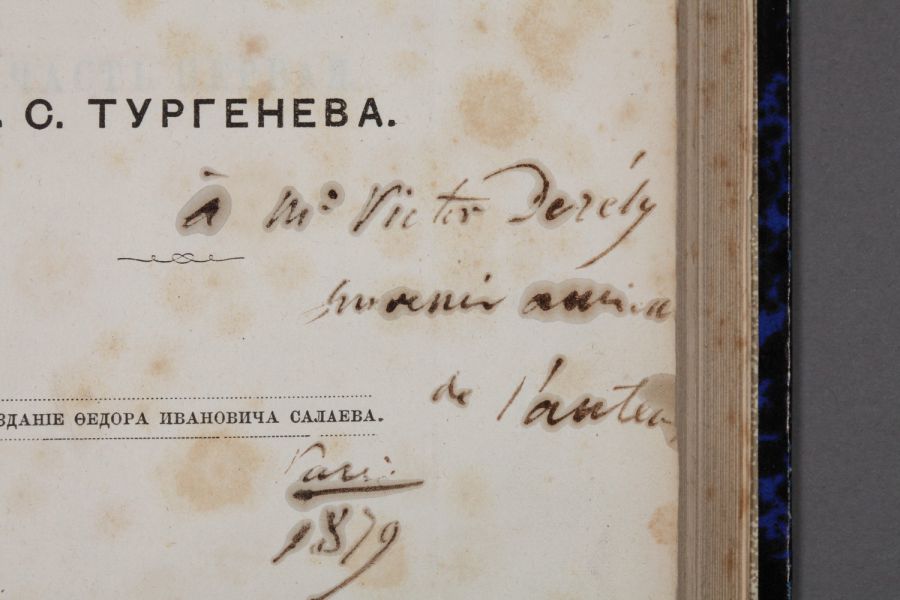 . С. ТУРГЕНЕВА.
à Mr. Victor Derély
souvenir amical
de l'auteur
ЗДАНІЕ ѲЕДОРА ИВАНОВИЧА САЛАЕВА.
Paris
1879